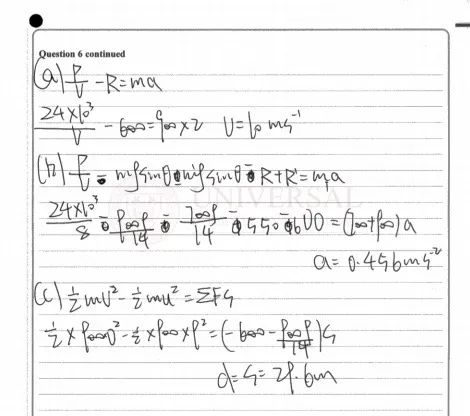 Question 6 continued
(a) P/V - R = ma
24×10³/V - 600 = 900×2 V=10 ms⁻¹
(b) P/V - mgsinθ - mgsinθ - R+R' = ma
24×10³/8 - 900g/14 - 700g/14 - 550 - 600 = (700+900)a
a = 0.456ms⁻²
(c) ½mv² - ½mu² = ΣFs
½ × 900 × 0² - ½ × 900 × 8² = (-600 - 900g/14)s
d = s = 29.6m
UNIVERSAL